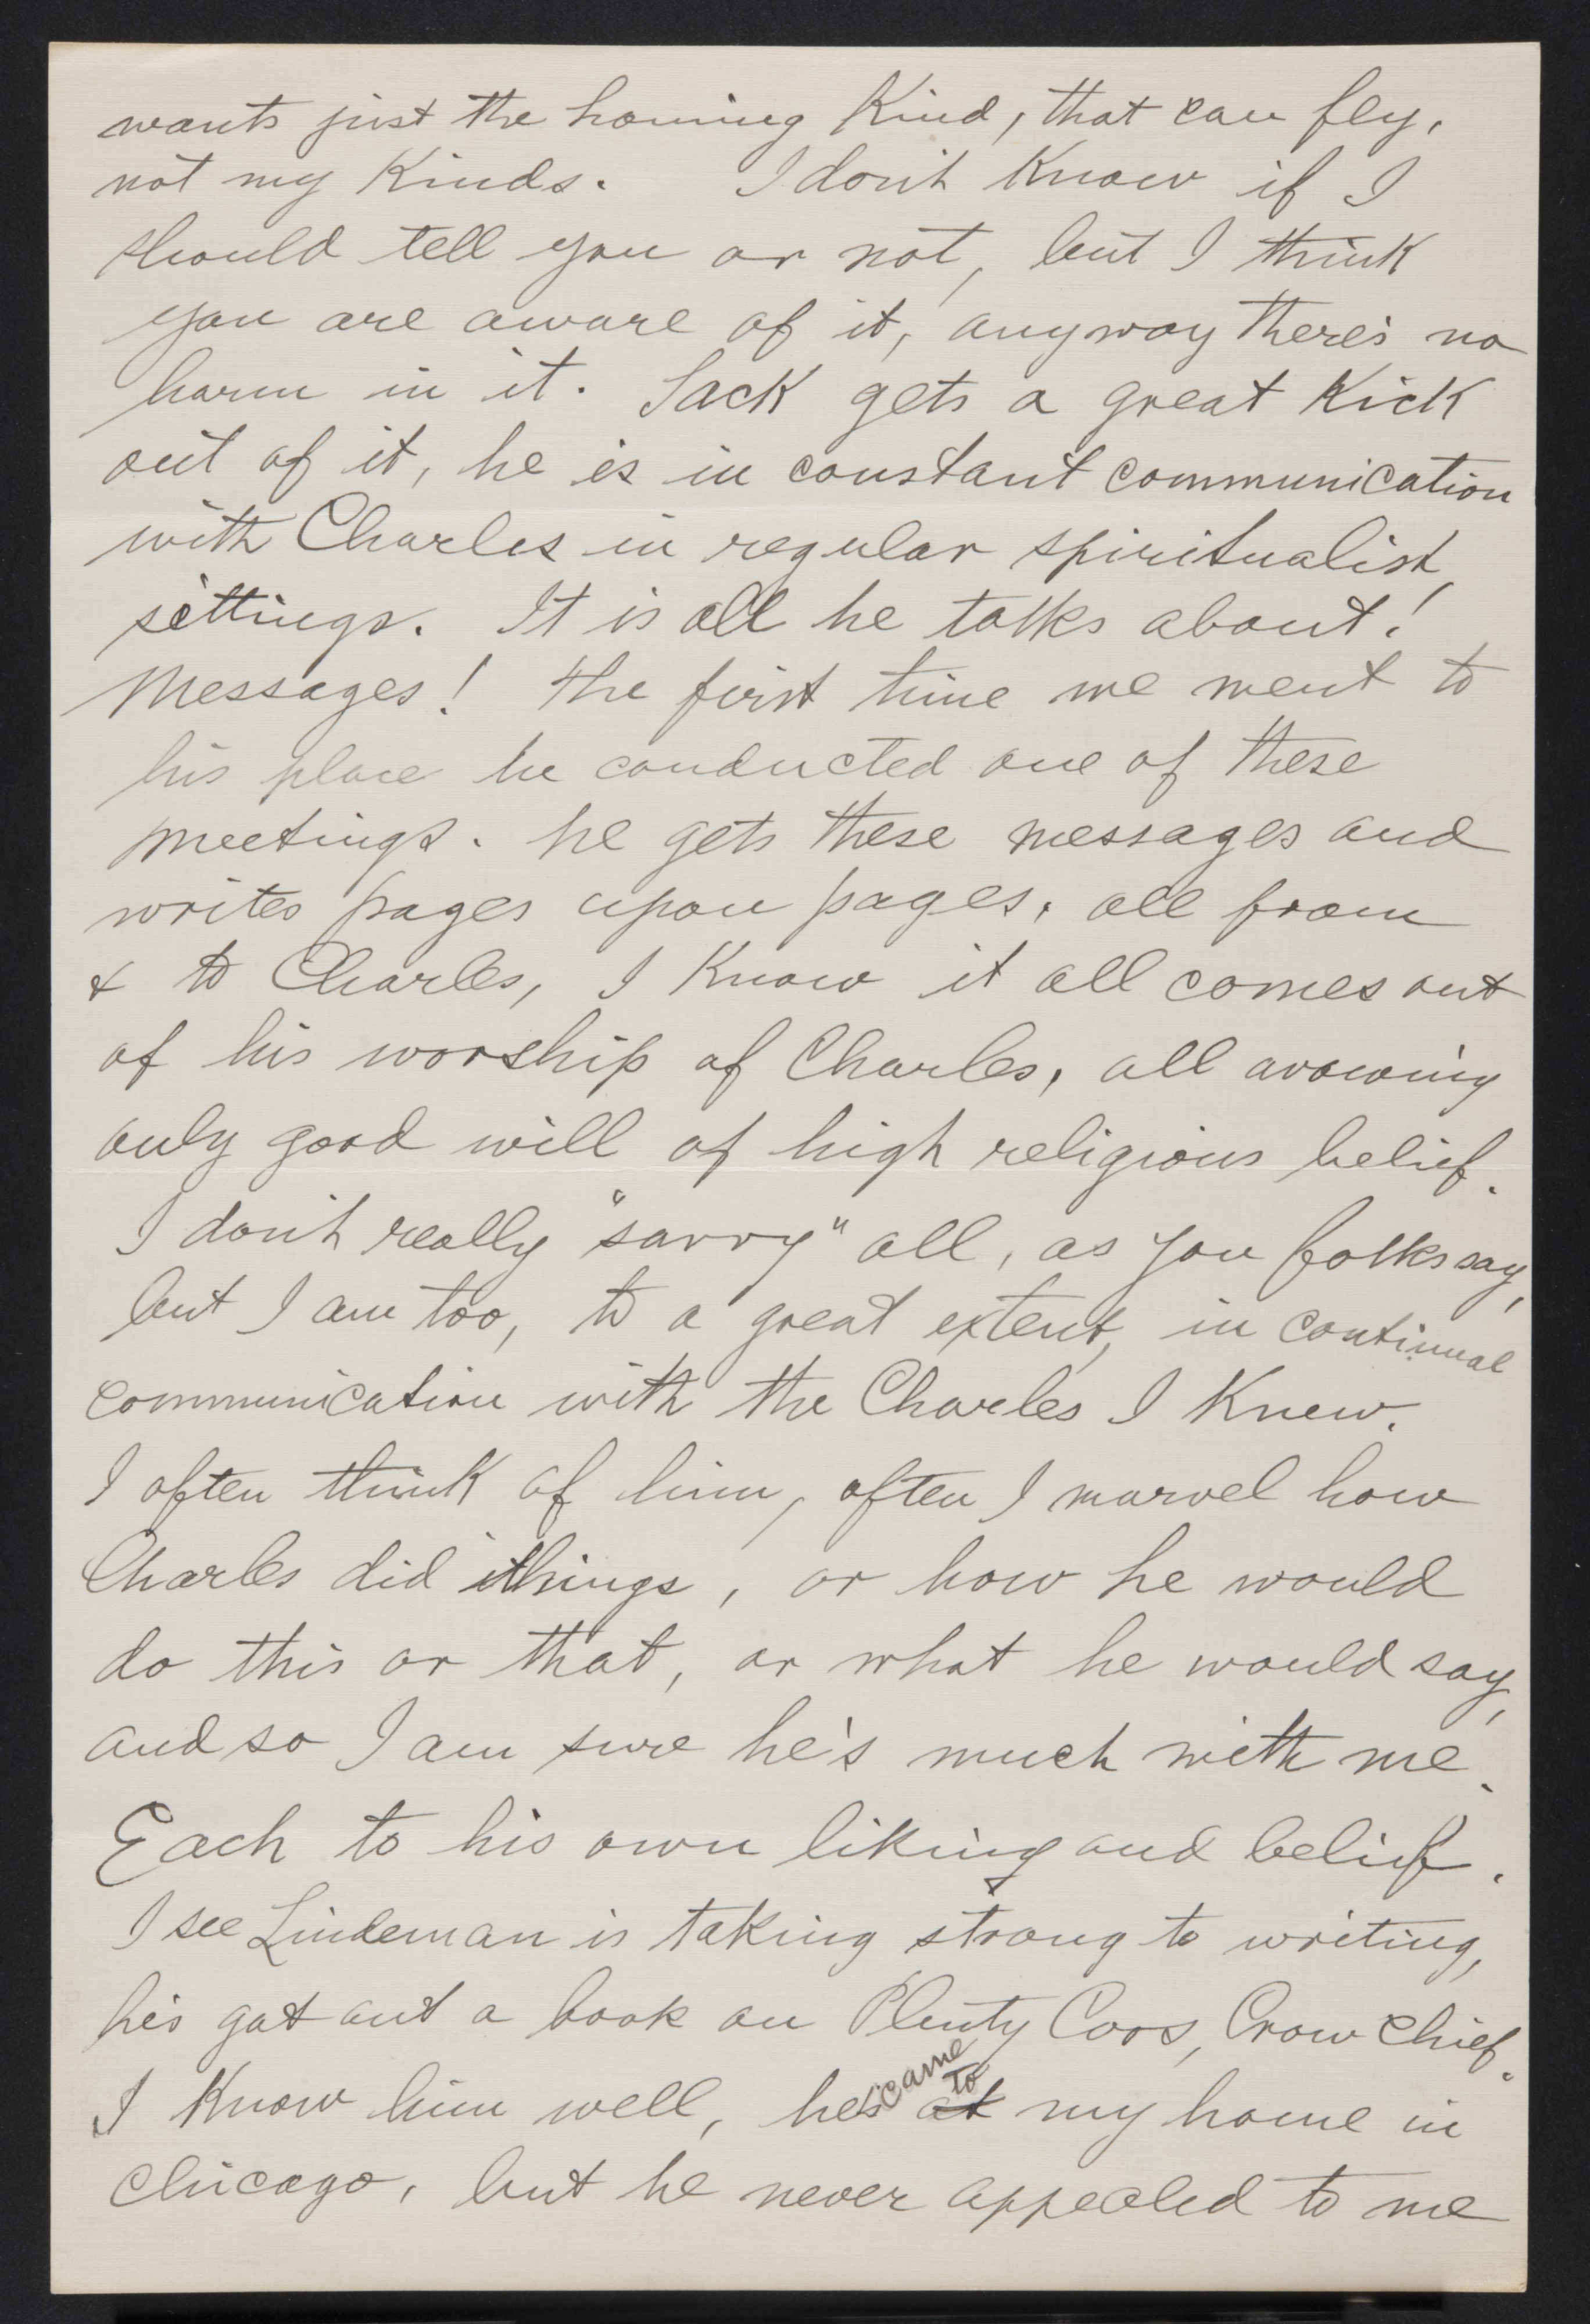 wants just the homing Kind, that can fly,
not my Kinds. I don't Know if I
should tell you or not, but I think
you are aware of it, anyway there's no
harm in it. Jack gets a great Kick
out of it, he is in constant communication
with Charles in regular spiritualist
sittings. It is all he talks about!
Messages! The first time we went to
his place he conducted one of these
meetings. he gets these messages and
writes pages upon pages, all from
& to Charles, I Know it all comes out
of his worship of Charles, all avowing
only good will of high religious belief.
I don't really "savvy" all, as you folks say,
but I am too, to a great extent, in continual
communication with the Charles I Knew.
I often think of him, often I marvel how
Charles did things, or how he would
do this or that, or what he would say,
and so I am sure he's much with me.
Each to his own liking and belief.
I see Lindeman is taking strong to writing,
he's got out a book on Plenty Coos, Crow Chief.
I Know him well, he's came to at my home in
Chicago, but he never appealed to me